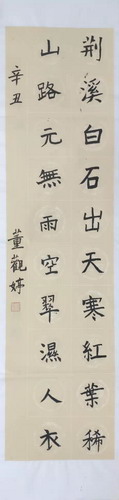 荆溪白石出天寒紅葉稀
山路元無雨空翠濕人衣
辛丑
董觀婷